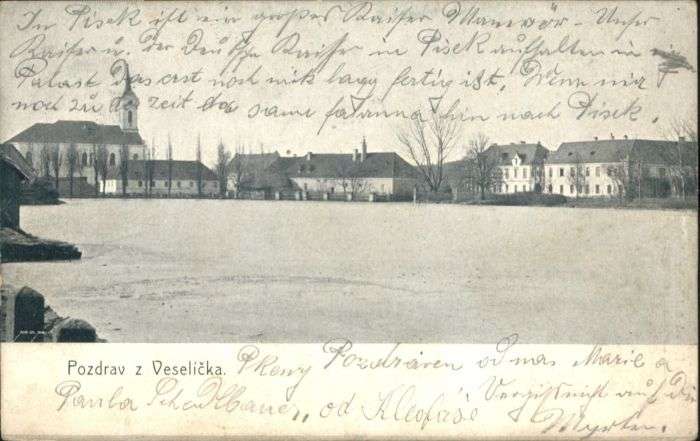 In Pisek ist ein großes Kaiser Manewör - Unser
Kaiser u. der Deutsche Kaiser in Pisek aufhalten in
Palast das erst noch nik lang fertig ist. Wenn wir
noch zu der zeit da same hin nach Pisek.
Pozdrav z Veselíčka. Pozdráven od nas Marie a
Paula Schadlbauer, od Kleofáše
Vergißt nicht auf den